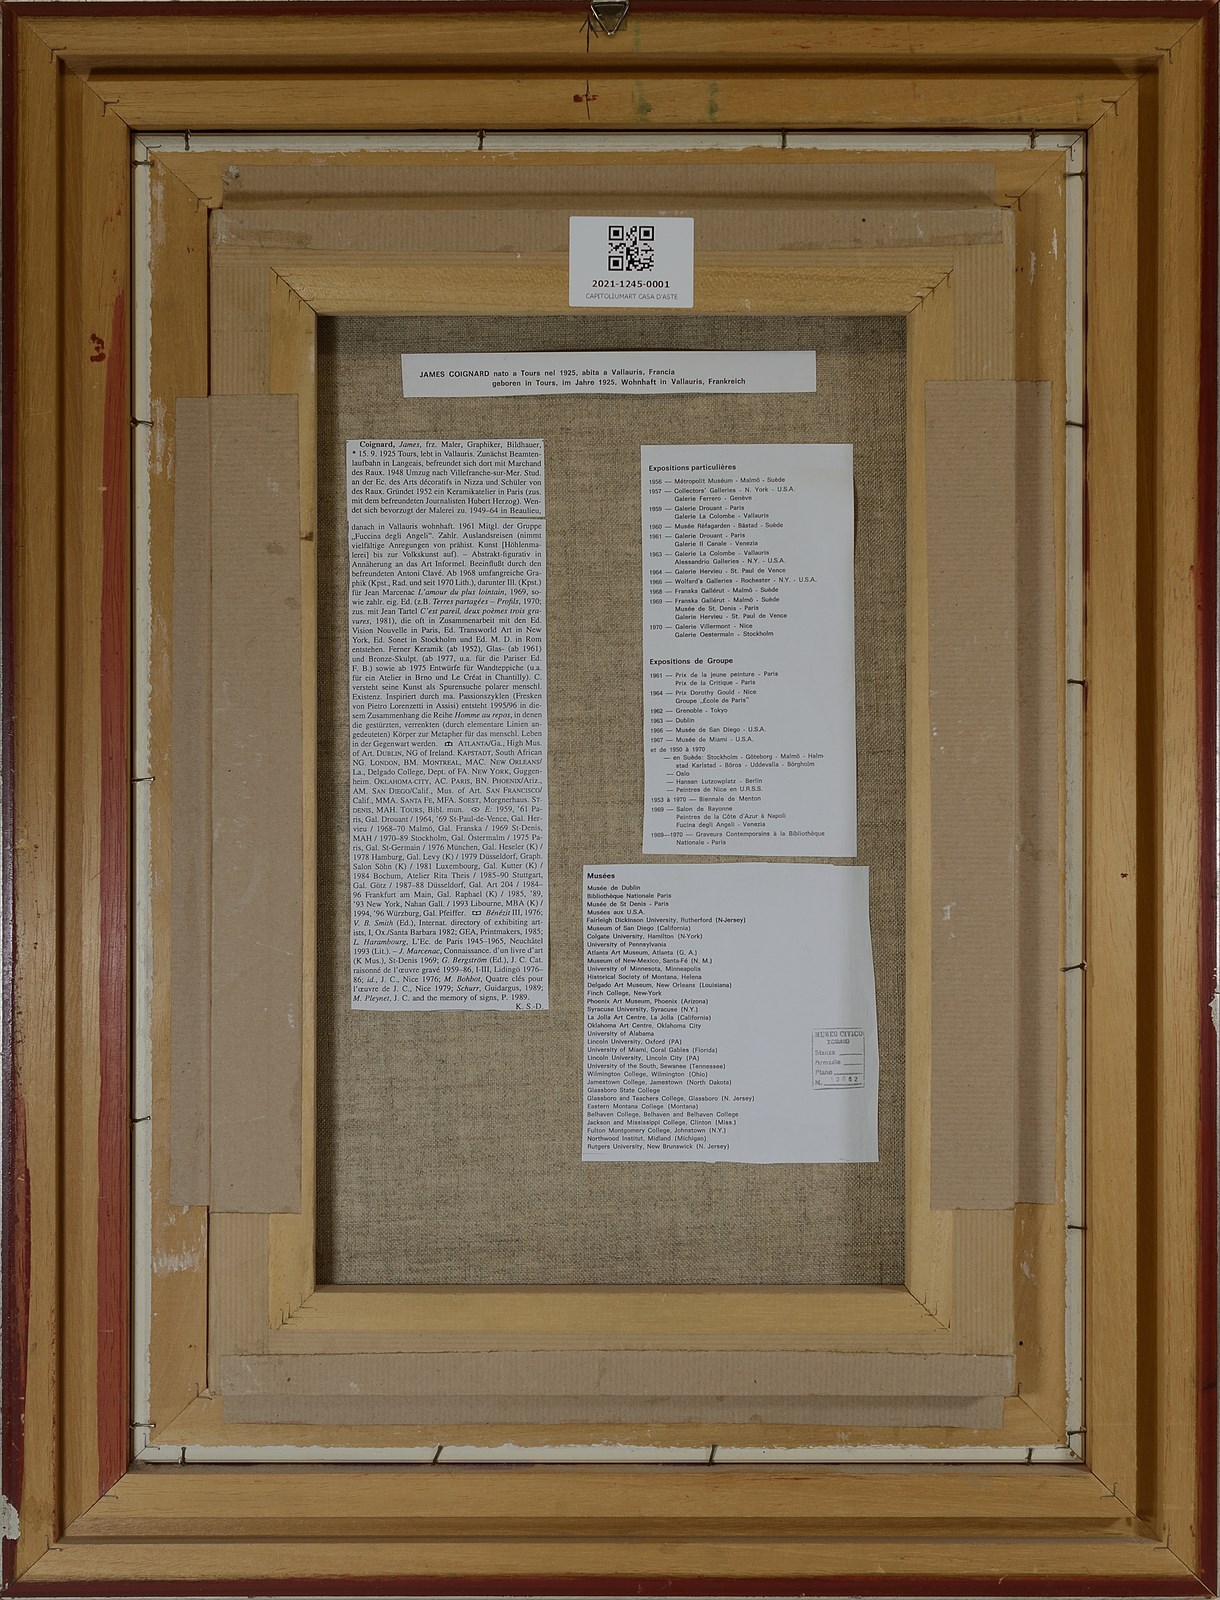 2021-1245-0001
CAPITOLIUMART CASA D'ASTE
JAMES COIGNARD nato a Tours nel 1925, abita a Vallauris, Francia
geboren in Tours, im Jahre 1925. Wohnhaft in Vallauris, Frankreich
Coignard, James, frz. Maler, Graphiker, Bildhauer,
* 15. 9. 1925 Tours, lebt in Vallauris. Zunächst Beamten-
laufbahn in Langeais, befreundet sich dort mit Marchand
des Raux. 1948 Umzug nach Villefranche-sur-Mer. Stud.
an der Ec. des Arts décoratifs in Nizza und Schüler von
des Raux. Gründet 1952 ein Keramikatelier in Paris (zus.
mit dem befreundeten Journalisten Hubert Herzog). Wen-
det sich bevorzugt der Malerei zu. 1949–64 in Beaulieu,
danach in Vallauris wohnhaft. 1961 Mitgl. der Gruppe
„Fuccina degli Angeli“. Zahlr. Auslandsreisen (nimmt
vielfältige Anregungen von prähist. Kunst [Höhlenma-
lerei] bis zur Volkskunst auf). – Abstrakt-figurativ in
Annäherung an das Art Informel. Beeinflußt durch den
befreundeten Antoni Clavé. Ab 1968 umfangreiche Gra-
phik (Kpst., Rad. und seit 1970 Lith.), darunter Ill. (Kpst.)
für Jean Marcenac L'amour du plus lointain, 1969, so-
wie zahlr. eig. Ed. (z.B. Terres partagées – Profils, 1970;
zus. mit Jean Tartel C'est pareil, deux poèmes trois gra-
vures, 1981), die oft in Zusammenarbeit mit den Ed.
Vision Nouvelle in Paris, Ed. Transworld Art in New
York, Ed. Sonet in Stockholm und Ed. M. D. in Rom
entstehen. Ferner Keramik (ab 1952), Glas- (ab 1961)
und Bronze-Skulpt. (ab 1977, u.a. für die Pariser Ed.
F. B.) sowie ab 1975 Entwürfe für Wandteppiche (u.a.
für ein Atelier in Brno und Le Créat in Chantilly). C.
versteht seine Kunst als Spurensuche polarer menschl.
Existenz. Inspiriert durch ma. Passionszyklen (Fresken
von Pietro Lorenzetti in Assisi) entsteht 1995/96 in die-
sem Zusammenhang die Reihe Homme au repos, in denen
die gestürzten, verrenkten (durch elementare Linien an-
gedeuteten) Körper zur Metapher für das menschl. Leben
in der Gegenwart werden. ATLANTA/Ga., High Mus.
of Art. DUBLIN, NG of Ireland. KAPSTADT, South African
NG. LONDON, BM. MONTREAL, MAC. NEW ORLEANS/
La., Delgado College, Dept. of FA. NEW YORK, Guggen-
heim. OKLAHOMA-CITY, AC. PARIS, BN. PHOENIX/Ariz.,
AM. SAN DIEGO/Calif., Mus. of Art. SAN FRANCISCO/
Calif., MMA. SANTA FE, MFA. SOEST, Morgnerhaus. ST-
DENIS, MAH. TOURS, Bibl. mun. E: 1959, '61 Pa-
ris, Gal. Drouant / 1964, '69 St-Paul-de-Vence, Gal. Her-
vieu / 1968–70 Malmö, Gal. Franska / 1969 St-Denis,
MAH / 1970–89 Stockholm, Gal. Östermalm / 1975 Pa-
ris, Gal. St-Germain / 1976 München, Gal. Heseler (K) /
1978 Hamburg, Gal. Levy (K) / 1979 Düsseldorf, Graph.
Salon Söhn (K) / 1981 Luxembourg, Gal. Kutter (K) /
1984 Bochum, Atelier Rita Theis / 1985–90 Stuttgart,
Gal. Götz / 1987–88 Düsseldorf, Gal. Art 204 / 1984–
96 Frankfurt am Main, Gal. Raphael (K) / 1985, '89,
'93 New York, Nahan Gall. / 1993 Libourne, MBA (K) /
1994, '96 Würzburg, Gal. Pfeiffer. Bénézit III, 1976;
V. B. Smith (Ed.), Internat. directory of exhibiting art-
ists, I, Ox./Santa Barbara 1982; GEA, Printmakers, 1985;
L. Harambourg, L'Ec. de Paris 1945–1965, Neuchâtel
1993 (Lit.). – J. Marcenac, Connaissance. d'un livre d'art
(K Mus.), St-Denis 1969; G. Bergström (Ed.), J. C. Cat.
raisonné de l'œuvre gravé 1959–86, I-III, Lidingö 1976–
86; id., J. C., Nice 1976; M. Bohbot, Quatre clés pour
l'œuvre de J. C., Nice 1979; Schurr, Guidargus, 1989;
M. Pleynet, J. C. and the memory of signs, P. 1989.
K. S.-D.
Expositions particulières
1956 — Métropolit Muséum - Malmö - Suède
1957 — Collectors' Galleries - N. York - U.S.A.
Galerie Ferrero - Genève
1959 — Galerie Drouant - Paris
Galerie La Colombe - Vallauris
1960 — Musée Réfagarden - Båstad - Suède
1961 — Galerie Drouant - Paris
Galerie Il Canale - Venezia
1963 — Galerie La Colombe - Vallauris
Alessandrio Galleries - N.Y. - U.S.A.
1964 — Galerie Hervieu - St. Paul de Vence
1966 — Wolfard's Galleries - Rochester - N.Y. - U.S.A.
1968 — Franska Gallérut - Malmö - Suède
1969 — Franska Gallérut - Malmö - Suède
Musée de St. Denis - Paris
Galerie Hervieu - St. Paul de Vence
1970 — Galerie Villermont - Nice
Galerie Oestermaln - Stockholm
Expositions de Groupe
1961 — Prix de la jeune peinture - Paris
Prix de la Critique - Paris
1964 — Prix Dorothy Gould - Nice
Groupe „Ecole de Paris“
1962 — Grenoble - Tokyo
1963 — Dublin
1966 — Musée de San Diego - U.S.A.
1967 — Musée de Miami - U.S.A.
et de 1950 à 1970
— en Suède: Stockholm - Göteborg - Malmö - Halm-
stad Karlstad - Böros - Uddevalla - Börgholm
— Oslo
— Hansan Lutzowplatz - Berlin
— Peintres de Nice en U.R.S.S.
1953 à 1970 — Biennale de Menton
1969 — Salon de Bayonne
Peintres de la Côte d'Azur à Napoli
Fucina degli Angeli - Venezia
1969—1970 — Graveurs Contemporains à la Bibliothèque
Nationale - Paris
Musées
Musée de Dublin
Bibliothèque Nationale Paris
Musée de St Denis - Paris
Musées aux U.S.A.
Fairleigh Dickinson University, Rutherford (N-Jersey)
Museum of San Diego (California)
Colgate University, Hamilton (N-York)
University of Pennsylvania
Atlanta Art Museum, Atlanta (G. A.)
Museum of New-Mexico, Santa-Fé (N. M.)
University of Minnesota, Minneapolis
Historical Society of Montana, Helena
Delgado Art Museum, New Orleans (Louisiana)
Finch College, New-York
Phoenix Art Museum, Phoenix (Arizona)
Syracuse University, Syracuse (N.Y.)
La Jolla Art Centre, La Jolla (California)
Oklahoma Art Centre, Oklahoma City
University of Alabama
Lincoln University, Oxford (PA)
University of Miami, Coral Gables (Florida)
Lincoln University, Lincoln City (PA)
University of the South, Sewanee (Tennessee)
Wilmington College, Wilmington (Ohio)
Jamestown College, Jamestown (North Dakota)
Glassboro State College
Glassboro and Teachers College, Glassboro (N. Jersey)
Eastern Montana College (Montana)
Belhaven College, Belhaven and Belhaven College
Jackson and Mississippi College, Clinton (Miss.)
Fulton Montgomery College, Johnstown (N.Y.)
Northwood Institut, Midland (Michigan)
Rutgers University, New Brunswick (N. Jersey)
MUSEO CIVICO
Stanza
Piano
N.